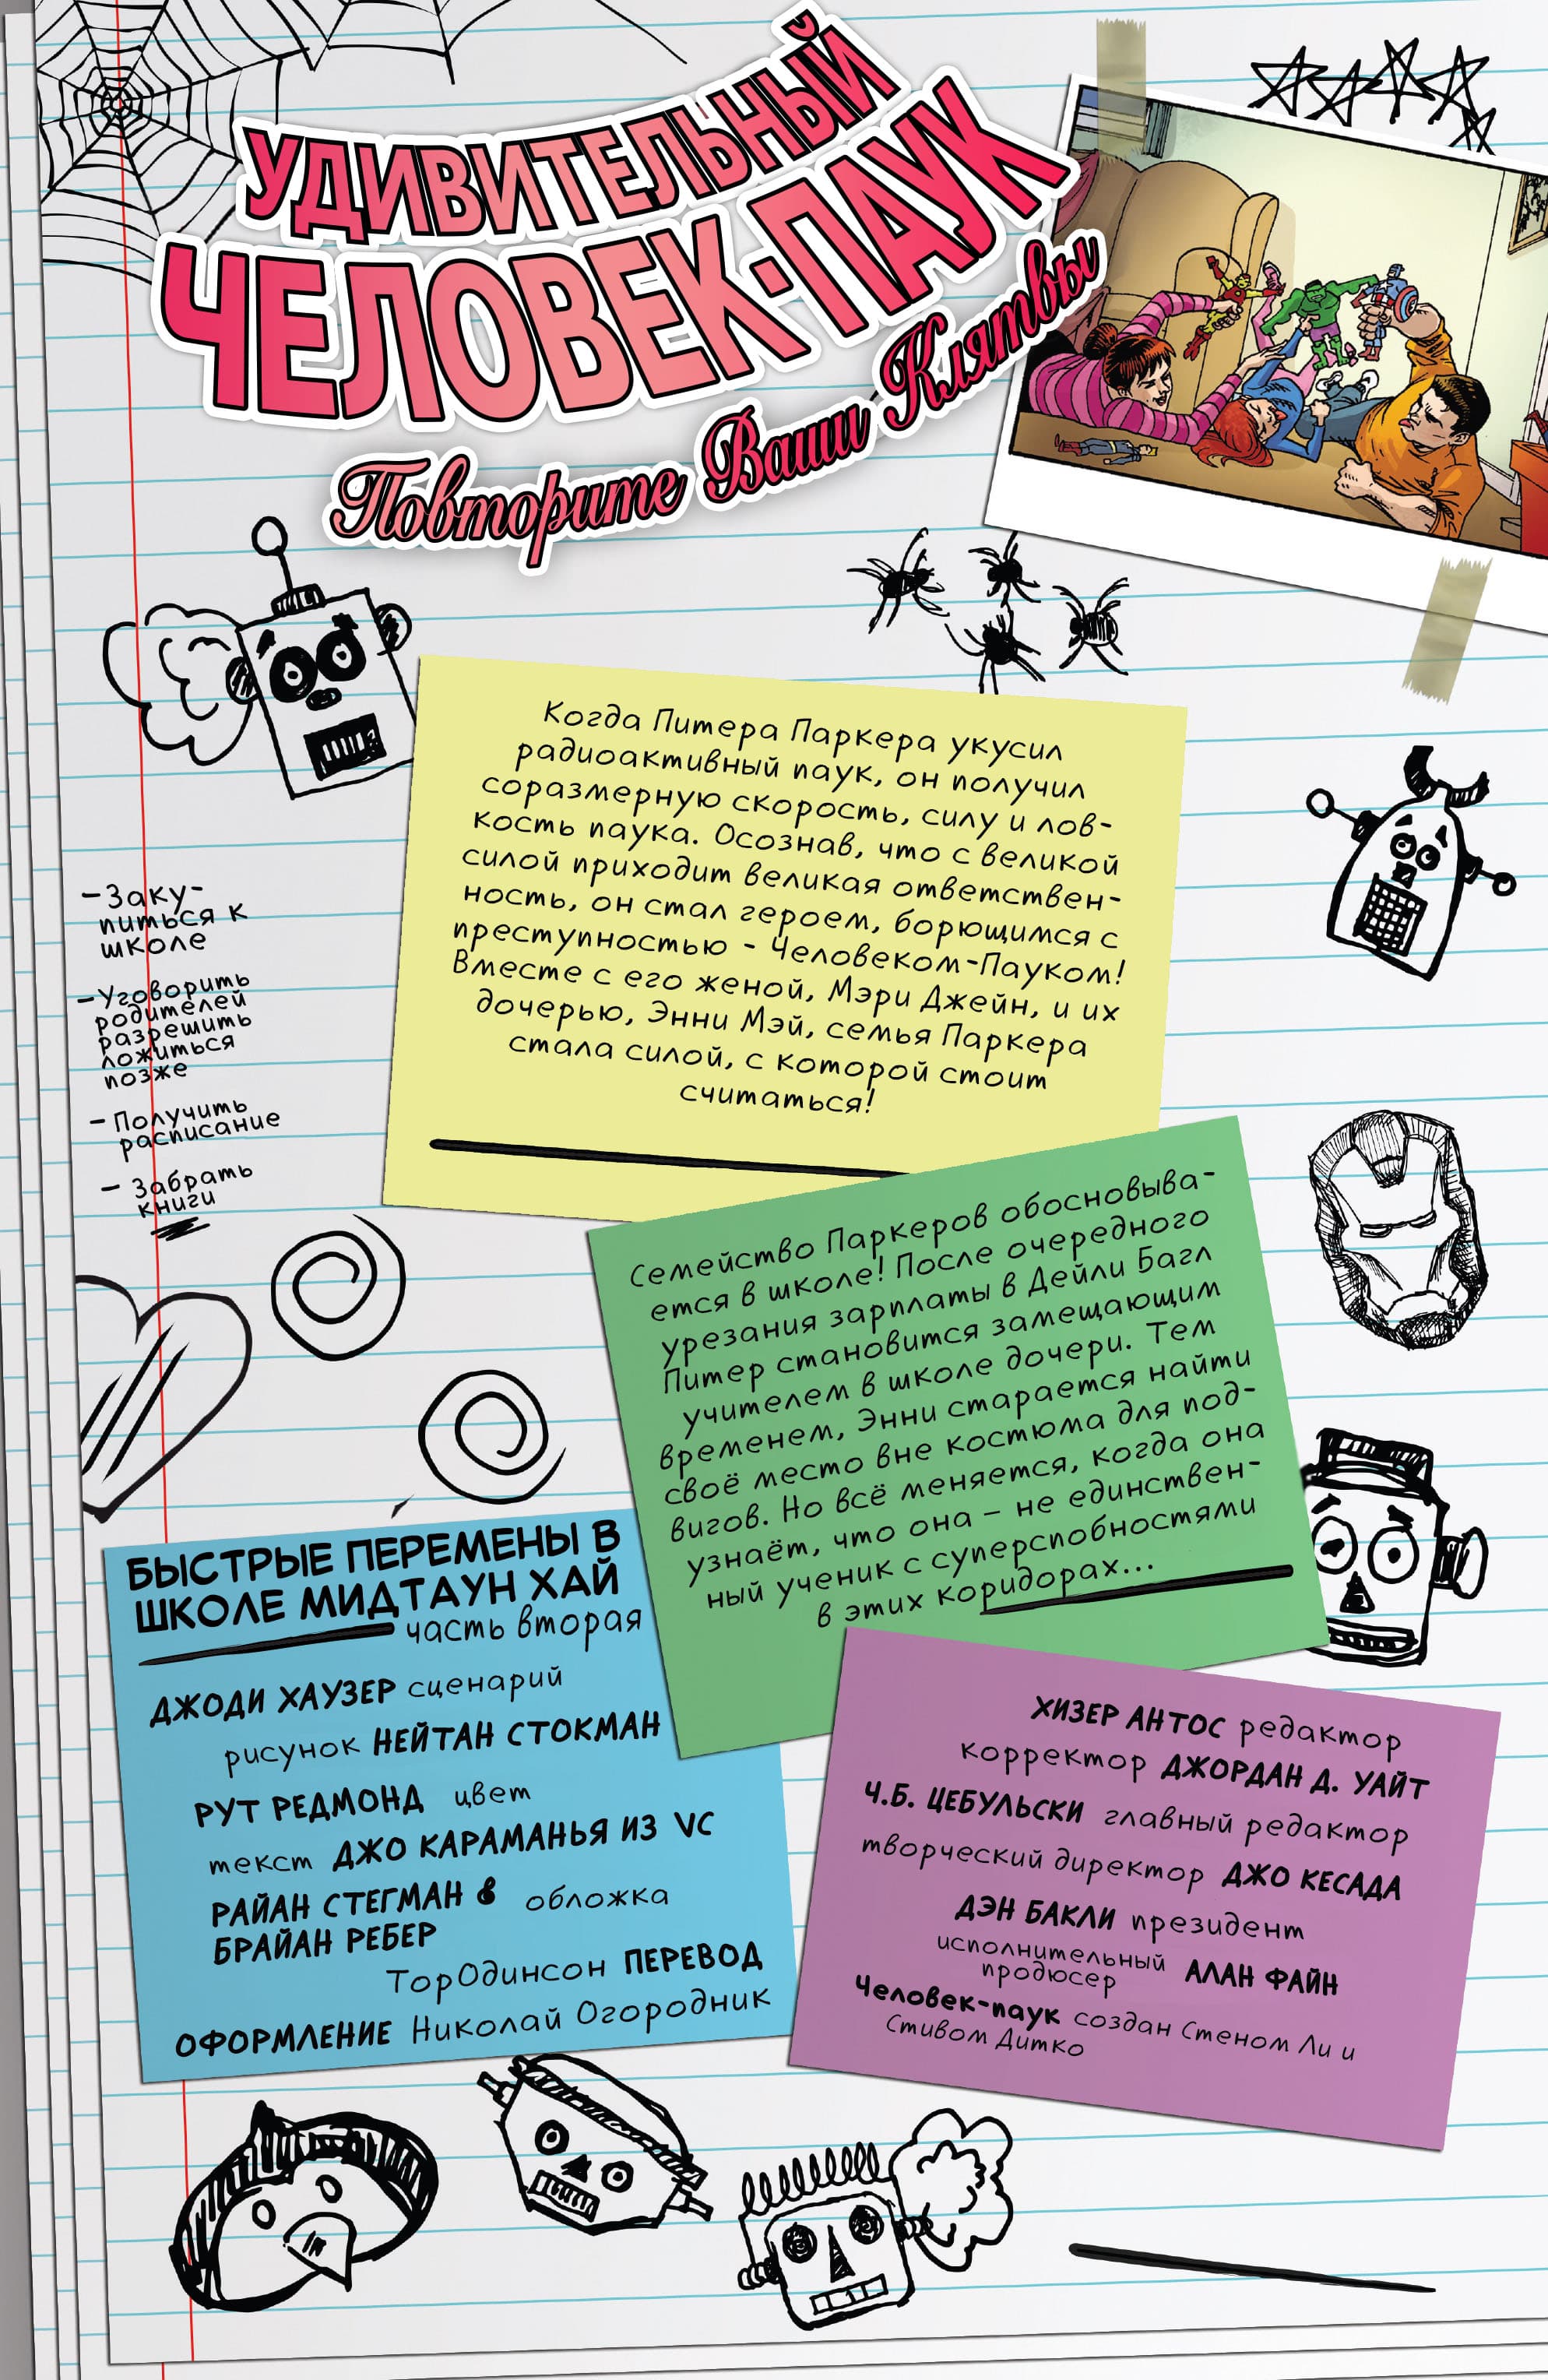 УДИВИТЕЛЬНЫЙ
ЧЕЛОВЕК-ПАУК
Повторите Ваши Клятвы
Когда Питера Паркера укусил
радиоактивный паук, он получил
соразмерную скорость, силу и лов-
кость паука. Осознав, что с великой
силой приходит великая ответствен-
ность, он стал героем, борющимся с
преступностью - Человеком-Пауком!
Вместе с его женой, Мэри Джейн, и их
дочерью, Энни Мэй, семья Паркера
стала силой, с которой стоит
считаться!
-Заку-
питься к
школе
-Уговорить
родителей
разрешить
ложиться
позже
- Получить
расписание
- Забрать
книги
Семейство Паркеров обосновыва-
ется в школе! После очередного
урезания зарплаты в Дейли Багл
Питер становится замещающим
учителем в школе дочери. Тем
временем, Энни старается найти
своё место вне костюма для под-
вигов. Но всё меняется, когда она
узнаёт, что она – не единствен-
ный ученик с суперспобностями
в этих коридорах...
БЫСТРЫЕ ПЕРЕМЕНЫ В
ШКОЛЕ МИДТАУН ХАЙ
часть вторая
ДЖОДИ ХАУЗЕР сценарий
рисунок НЕЙТАН СТОКМАН
РУТ РЕДМОНД цвет
текст ДЖО КАРАМАНЬЯ ИЗ VC
РАЙАН СТЕГМАН & обложка
БРАЙАН РЕБЕР
ТорОдинсон ПЕРЕВОД
ОФОРМЛЕНИЕ Николай Огородник
ХИЗЕР АНТОС редактор
корректор ДЖОРДАН Д. УАЙТ
Ч.Б. ЦЕБУЛЬСКИ главный редактор
творческий директор ДЖО КЕСАДА
ДЭН БАКЛИ президент
исполнительный
продюсер АЛАН ФАЙН
Человек-паук создан Стеном Ли и
Стивом Дитко